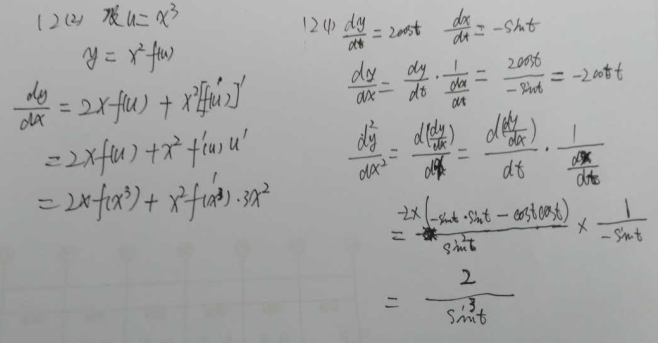 12(2) 设 u = x³
y = x² f(u)
dy/dx = 2x f(u) + x² [f(u)]'
= 2x f(u) + x² f'(u) u'
= 2x f(x³) + x² f'(x³) · 3x²
12(4) dy/dt = 2cost dx/dt = -sint
dy/dx = dy/dt · 1/(dx/dt) = 2cost/-sint = -2cott
d²y/dx² = d(dy/dx)/dx = d(dy/dx)/dt · 1/(dx/dt)
= -2×(-sint·sint - cost cost)/sin²t × 1/-sint
= 2/sin³t